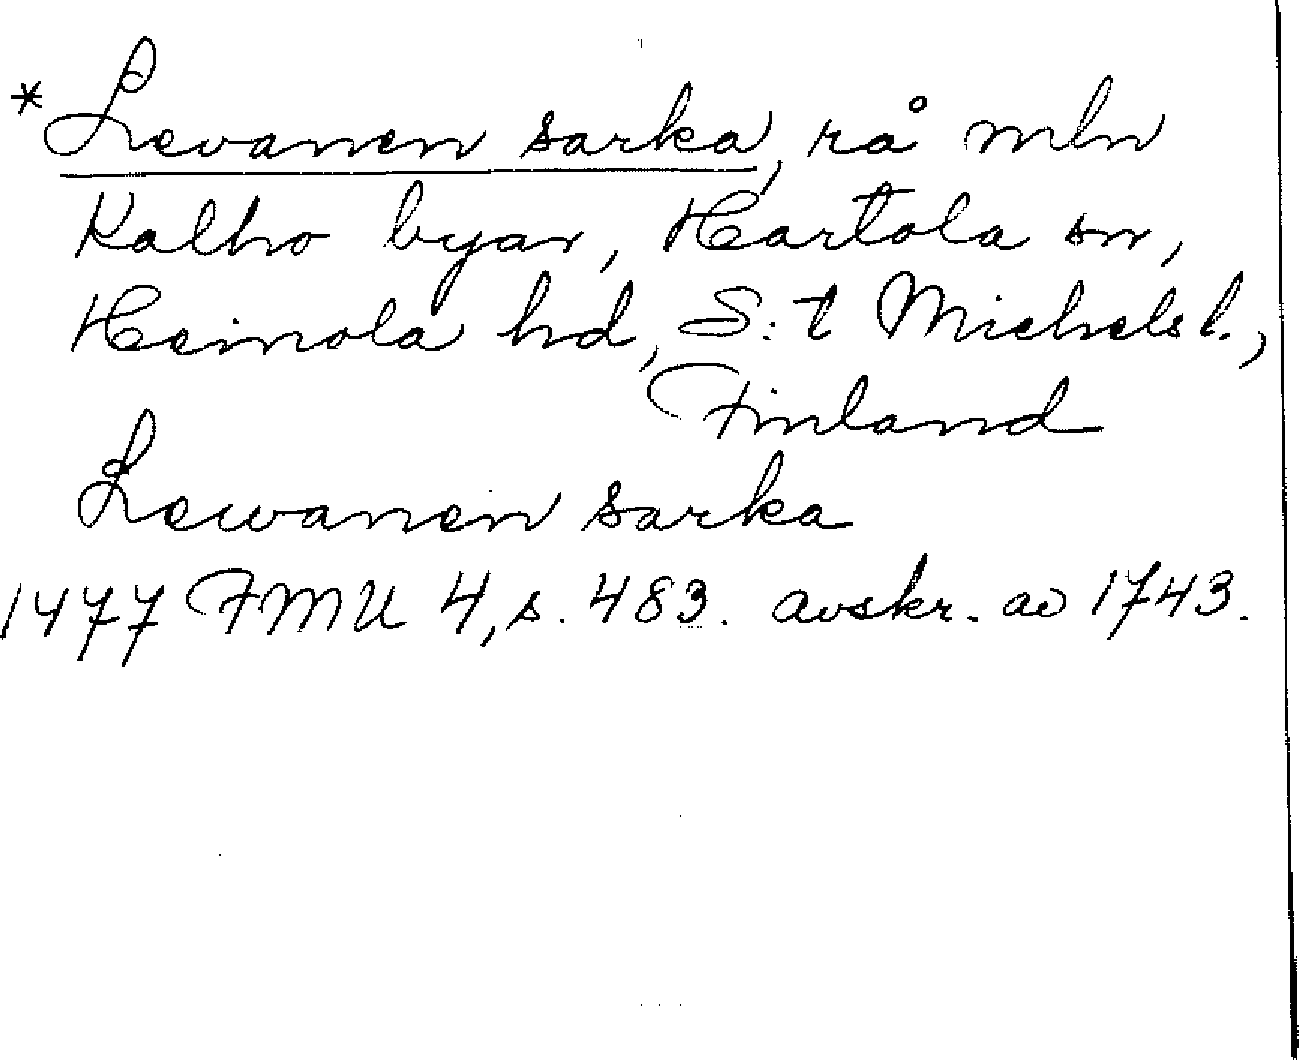 *Levanen sarka, rå mln
Kalho byar, Hartola sn,
Heinola hd, S:t Michels l.,
Finland
Lewanen sarka
1477 FMU 4, s. 483. avskr. av 1743.